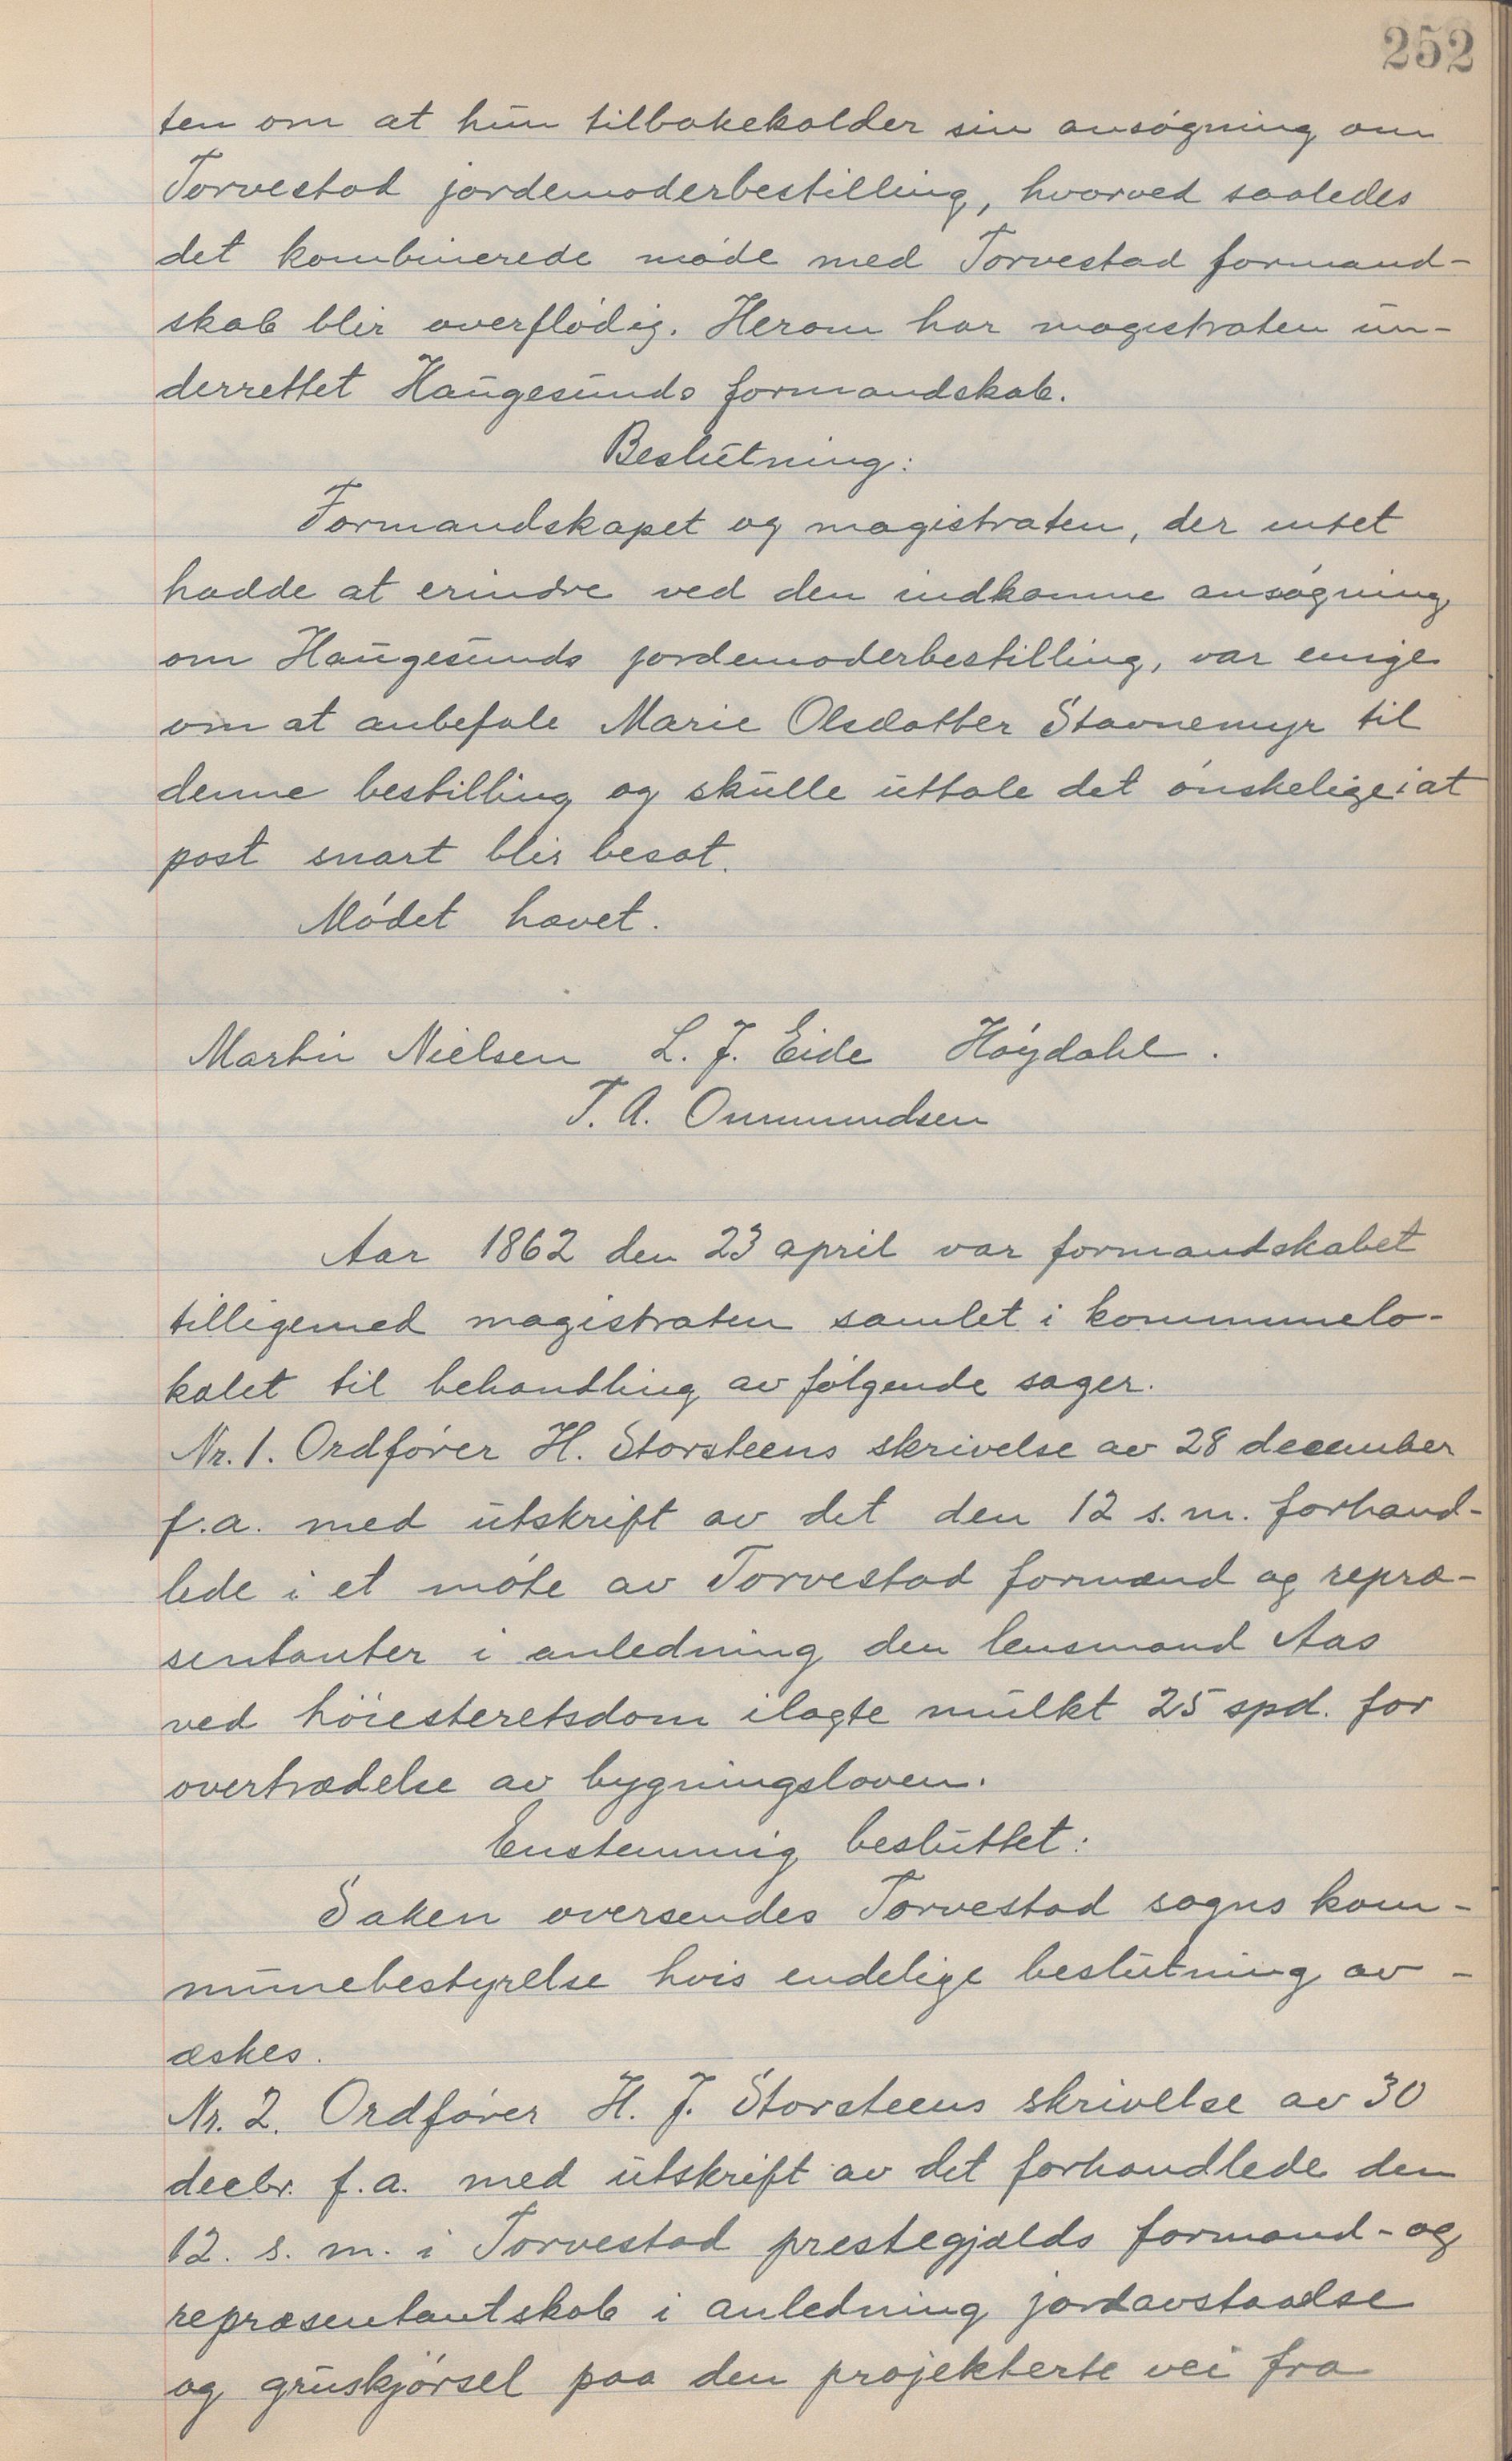 252
ten om at hun tilbakekalder sin ansøgning om
Torvestad jordemoderbestilling, hvorved saaledes
det kombinerede møde med Torvestad formand-
skab blir overflødig. Herom har magistraten un-
derrettet Haugesunds formandskab.
Beslutning:
Formandskapet og magistraten, der intet
hadde at erindre ved den indkomne ansøgning
om Haugesunds jordemoderbestilling, var enige
om at anbefale Marie Olsdatter Stavnemyr til
denne bestilling og skulle uttale det ønskelige i at
post snart blir besat.
Mødet hævet.
Martin Nielsen L. J. Eide Høydahl.
T. A. Ommundsen
Aar 1862 den 23 april var formandskabet
tilligemed magistraten samlet i kommunelo-
kalet til behandling av følgende sager.
Nr. 1. Ordfører H. Storsteens skrivelse av 28 december
f.a. med utskrift av det den 12 s. m. forhand-
lede i et møte av Torvestad formænd og repræ-
sentanter i anledning den lensmand Aas
ved høiesteretsdom ilagte mulkt 25 spd. for
overtrædelse av bygningsloven.
Enstemmig besluttet:
Saken oversendes Torvestad sogns kom-
munebestyrelse hvis endelige beslutning av-
æskes.
Nr. 2. Ordfører H. J. Storsteens skrivelse av 30
decbr. f.a. med utskrift av det forhandlede den
12. s. m. i Torvestad prestegjælds formand- og
repræsentantskab i anledning jordavstaaelse
og gruskjørsel paa den projekterte vei fra